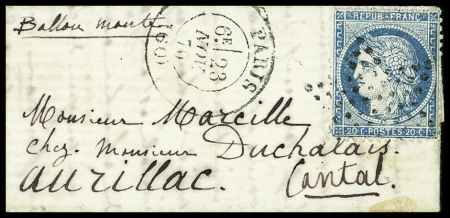 Ballon monté
PARIS
6E / 23
NOV
70
(60)
REPUB. FRANC.
20 C. POSTES 20 C.
Monsieur Marcille
chez Monsieur Duchalais.
aurillac. Cantal.